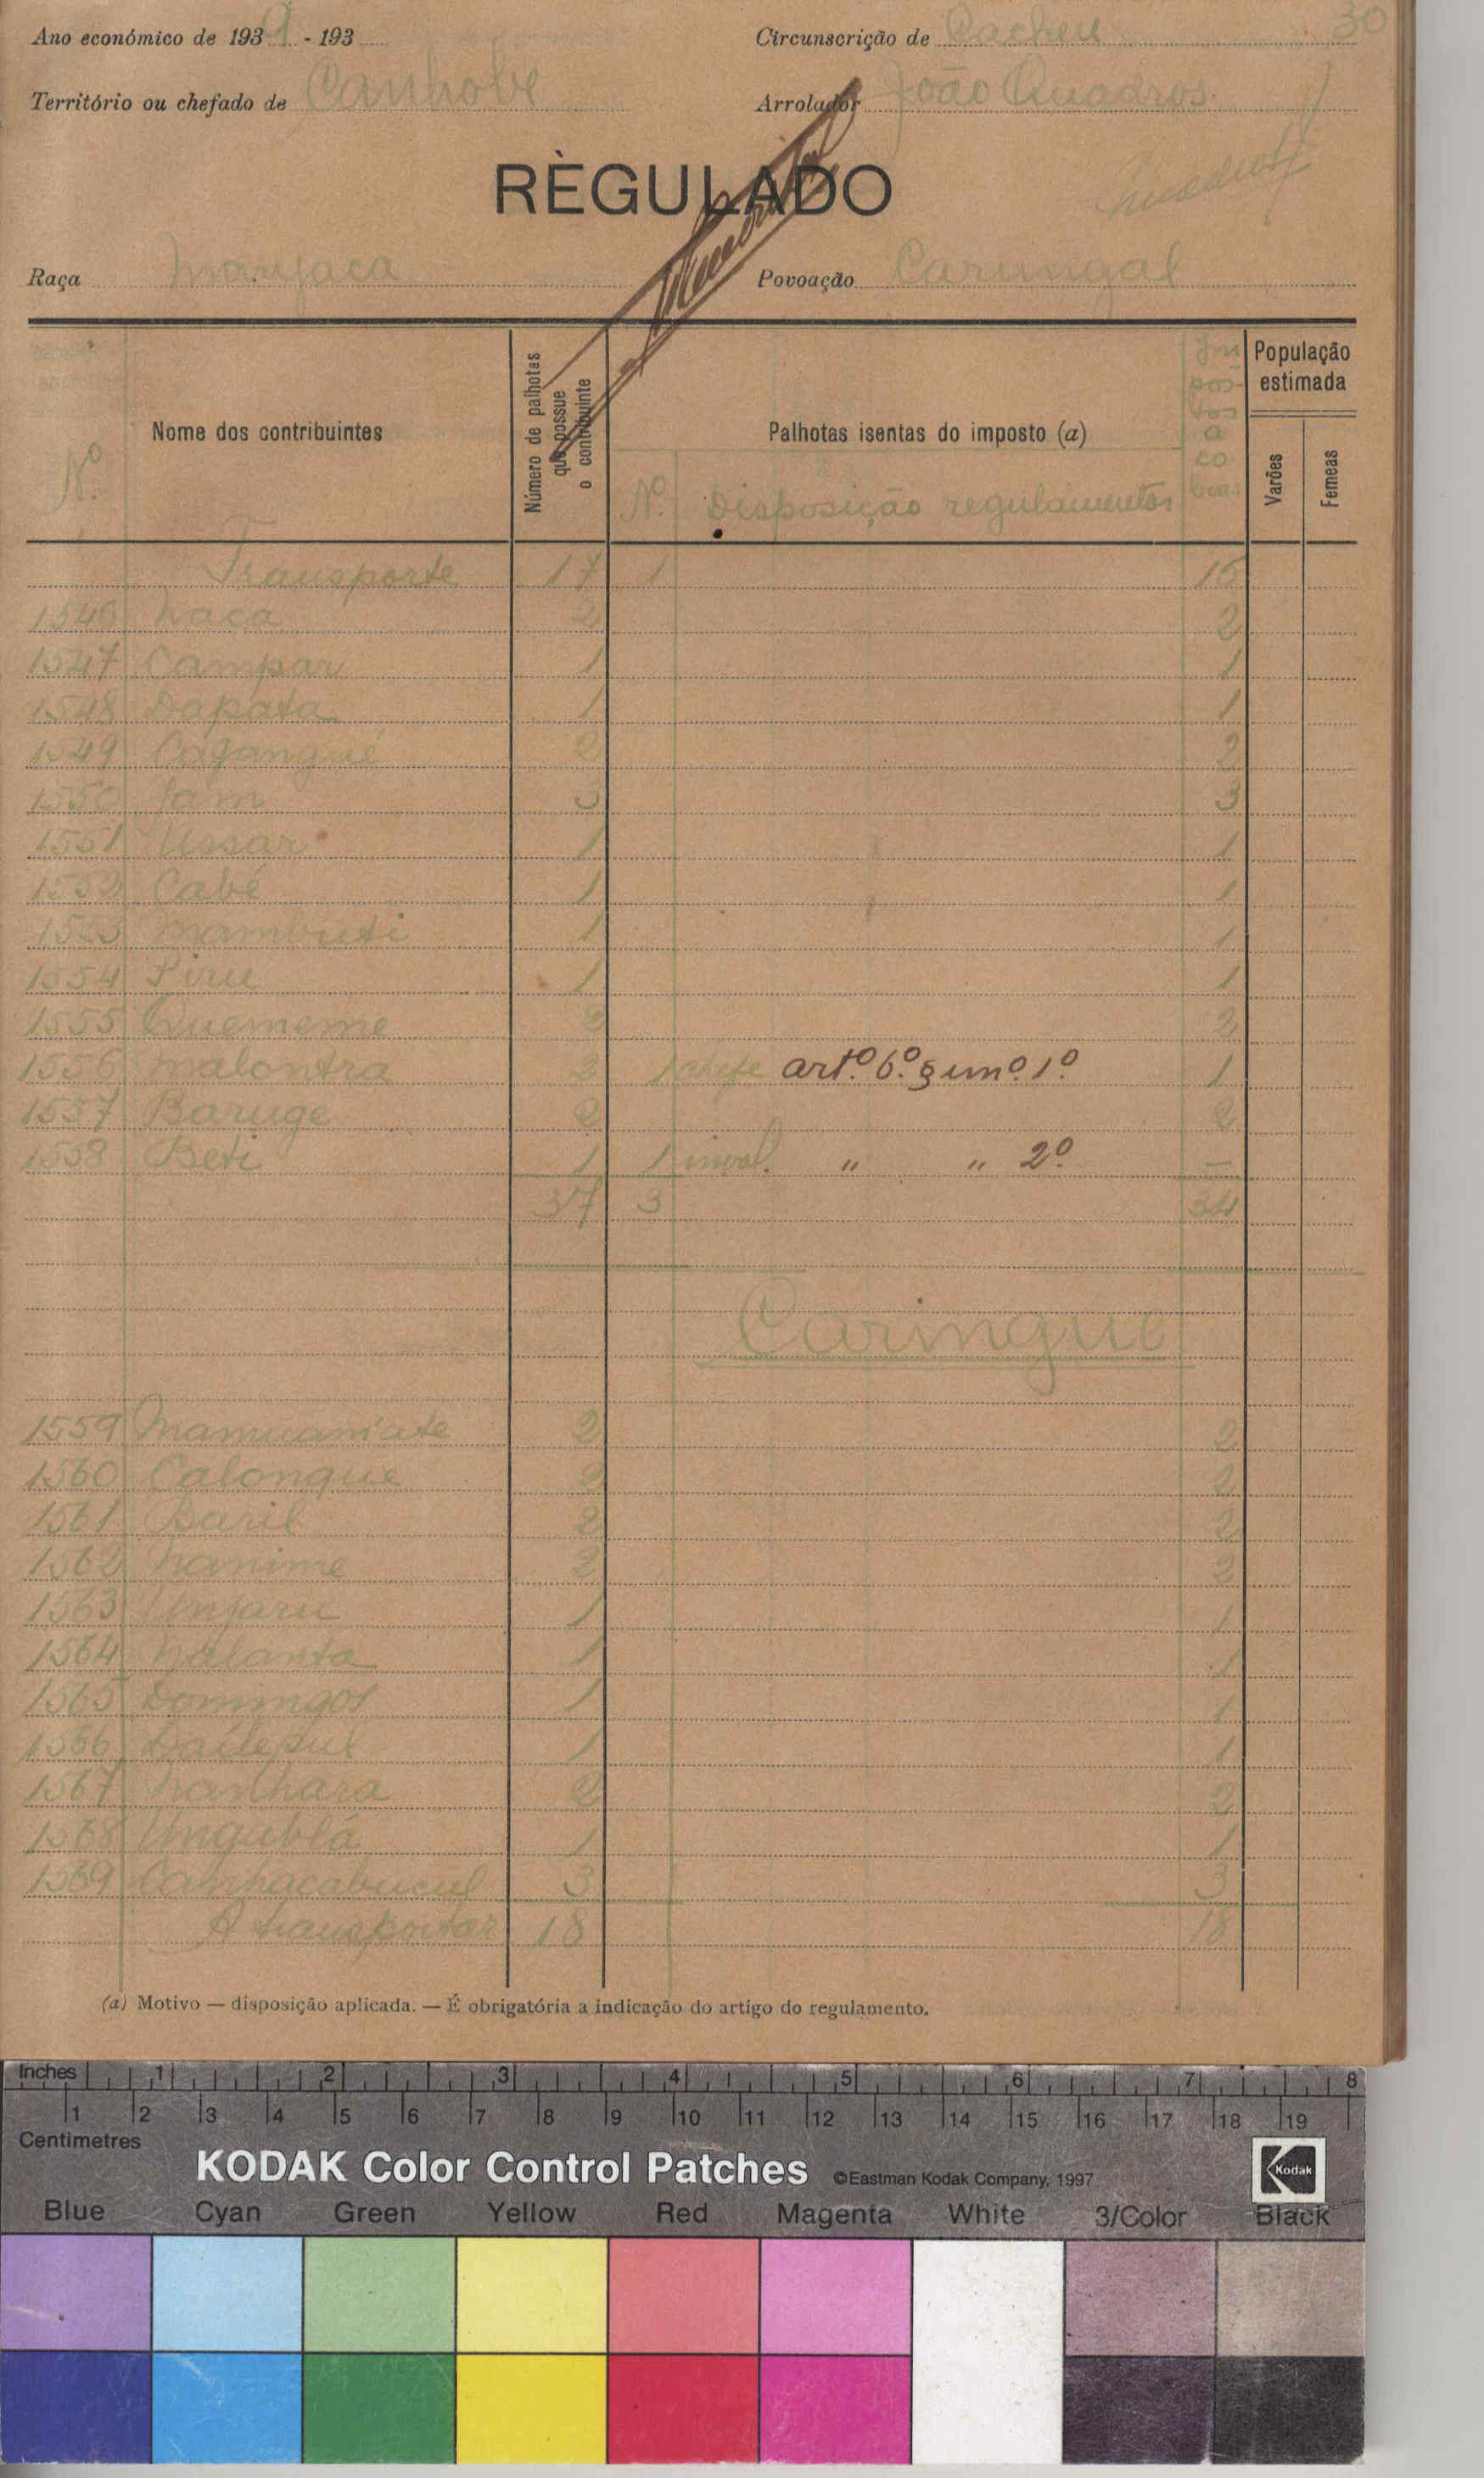 30
Ano económico de 1939 - 193
Circunscrição de Cacheu
Território ou chefado de Canhobe
Arrolador João Quadros
RÈGULADO
Raça Manjaca
Povoação Carungal
Nº
Nome dos contribuintes
Número de palhotas que possue o contribuinte
Palhotas isentas do imposto (a)
Nº. Disposição regulamentos
Im pos- tos a co brar
População estimada
Varões
Femeas
Transporte 17 1 16
1546 Naca 2 2
1547 Campar 1 1
1548 Dapata 1 1
1549 Cagangué 2 2
1550 Jam 3 3
1551 Ussar 1 1
1552 Cabé 1 1
1553 Nambuti 1 1
1554 1 1
1555 Quememe 2 2
1556 2 1 chefe artº 6º § un.º 1º 1
1557 Baruge 2 2
1558 Beti 1 1 inval. " " 2º —
37 3 34
Caringue
1559 2 2
1560 Calongue 2 2
1561 Baril 2 2
1562 Nanime 2 2
1563 Unfaru 1 1
1564 Nalanta 1 1
1565 Domingos 1 1
1566 1 1
1567 Nanhara 2 2
1568 Ungublá 1 1
1569 Canhacabucul 3 3
A transportar 18 18
(a) Motivo — disposição aplicada. — É obrigatória a indicação do artigo do regulamento.
Inches 1 2 3 4 5 6 7 8
1 2 3 4 5 6 7 8 9 10 11 12 13 14 15 16 17 18 19
Centimetres
KODAK Color Control Patches ©Eastman Kodak Company, 1997 Kodak
Blue Cyan Green Yellow Red Magenta White 3/Color Black